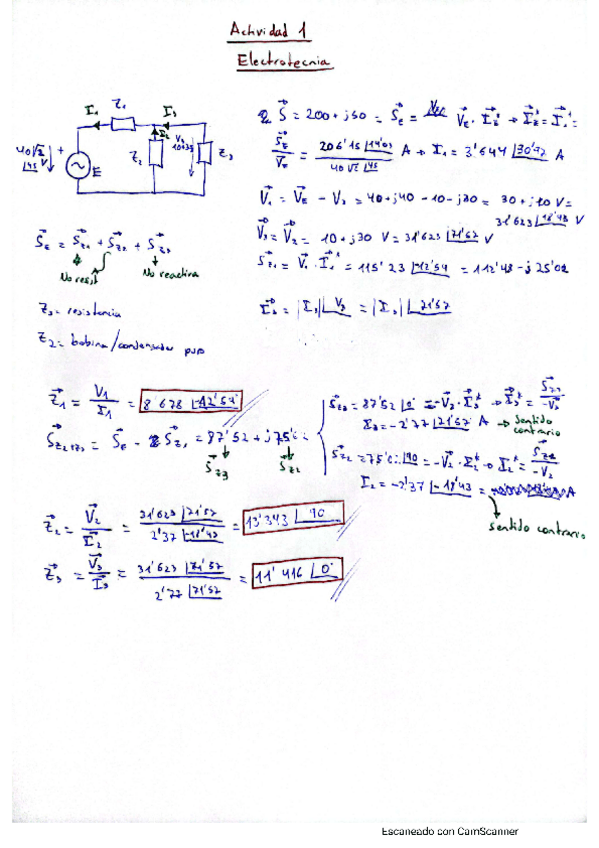 Actividad 1
Electrotecnia
I₁ Z₁ I₃
40√2 |45 V + E Z₂ I₂ V₃ 10+j30 Z₃
S⃗ = 200 + j50 = S⃗E = V⃗E · I⃗E* → I⃗E* = I⃗1* =
S⃗E / V⃗E = 206'15 |14'03 / 40√2 |45 A → I₁ = 3'644 |30'97 A
V⃗₁ = V⃗E − V₃ = 40+j40 − 10 − j30 = 30 + j10 V =
31'623 |18'43 V
V⃗₃ = V⃗₂ = 10 + j30 V = 31'623 |71'57 V
S⃗Z1 = V⃗₁ · I⃗₁* = 115'23 |-12'54 = 112'48 − j 25'02
I⃗₃ = |I₃| |V₃ = |I₃| |71'57
S⃗E = S⃗Z1 + S⃗Z2 + S⃗Z3
No resist No reactiva
Z₃ = resistencia
Z₂ = bobina/condensador puro
Z⃗₁ = V₁ / I₁ = 8'678 |-12'54
S⃗Z2+Z3 = S⃗E − S⃗Z1 = 87'52 + j75'02
S⃗Z3 S⃗Z2
S⃗Z3 = 87'52 |0° = −V⃗₃ · I⃗₃* → I⃗₃* = S⃗Z3 / −V⃗₃
I₃ = −2'77 |71'57 A → Sentido contrario
S⃗Z2 = 75'02 |90 = −V⃗₂ · I₂* → I₂* = S⃗Z2 / −V₂
I₂ = −2'37 |-18'43 = A
Sentido contrario
Z⃗₂ = V⃗₂ / I⃗₂ = 31'623 |71'57 / 2'37 |-18'43 = 13'343 |90
Z⃗₃ = V⃗₃ / I₃ = 31'623 |71'57 / 2'77 |71'57 = 11'416 |0°
Escaneado con CamScanner